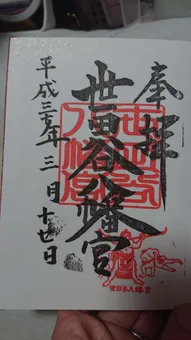 奉拝
世田谷八幡宮
世田谷八幡宮
平成三十年三月十七日
世田谷八幡宮